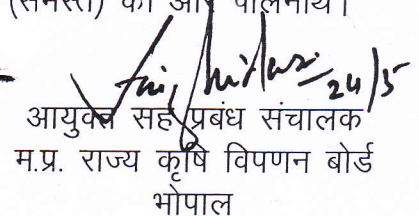 (समस्त) की ओर पालनार्थ।
24/5
आयुक्त सह प्रबंध संचालक
म.प्र. राज्य कृषि विपणन बोर्ड
भोपाल